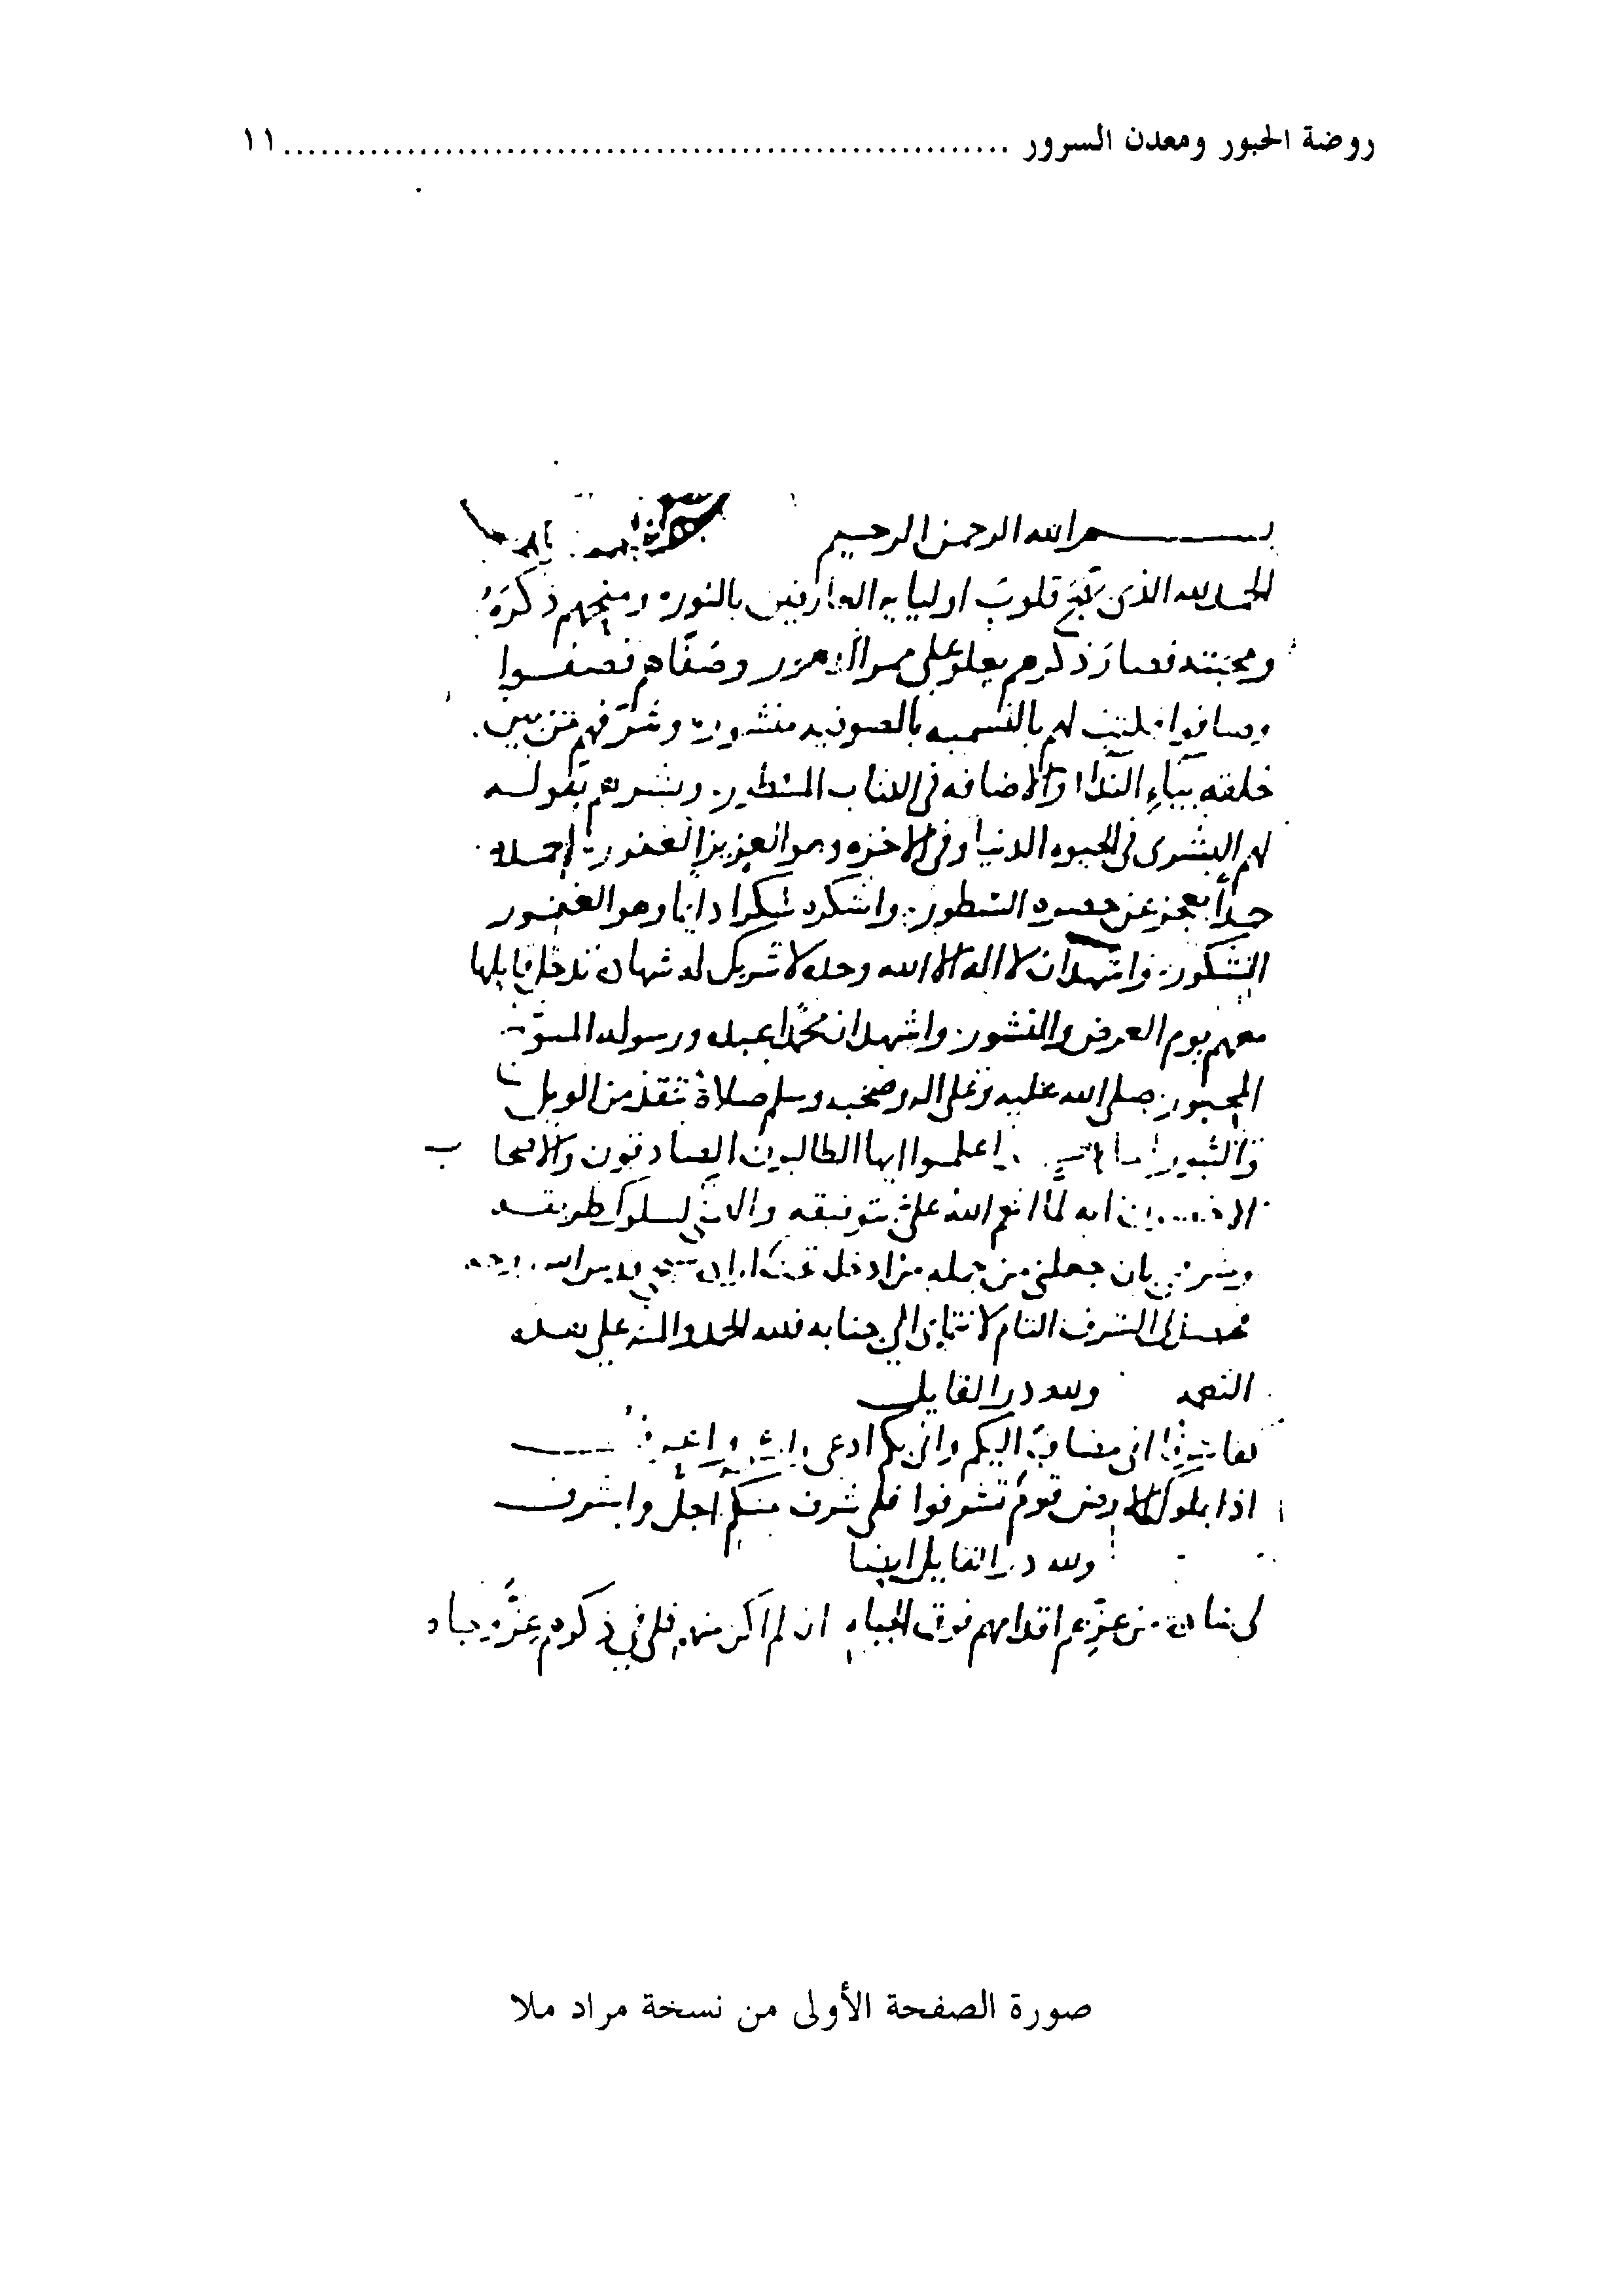 روضة الحبور ومعدن السرور ........................................................... ١١
بسم الله الرحمن الرحيم
الحمد لله الذى قلوب اوليايه العارفين بالنور ومنحهم ذكره
ومحبته فصار ذكرهم يعلو على وصفاهم فصفوا
وصافوا لهم بالتسميه بالصوفيه منشور وشرفهم من بين
خلقه بياء الندا والاضافه فى الكتاب المسطور وبشرهم بقوله
لهم البشرى فى الحيوه الدنيا وفى الاخره وهو العزيز الغفور احمده
حمدا يعجز عن حصره السطور واشكره شكرا دايما وهو الغفور
الشكور واشهد ان لا اله الا الله وحده لا شريك له شهادة تدخل قايلها
معهم يوم العرض والنشور واشهد ان محمدا عبده ورسوله
المحبور صلى الله عليه وعلى اله وصحبه وسلم صلاة تنقذ من الويل
والثبور اما اعلموا ايها الطالبون الصادقون والاصحاب
انه لما انعم الله على بتوفيقه لسلوك طريقه
بان جعلنى من جمله من ادخل
فحصل لى الشرف التام لانتمائى الى جنابه فلله الحمد والمنه على هذه
النعمه ولله در القايل
كفانى شرفا انى مضاف اليكم وانى بكم ادعى واعرف
اذا بملوك الارض قوم تشرفوا فلى شرف منكم اجل واشرف
ولله در القايل ايضا
لى سادة من عزهم اقدامهم فوق الجباه ان لم اكن منهم فلى فى ذكرهم عز وجاه
صورة الصفحة الأولى من نسخة مراد ملا